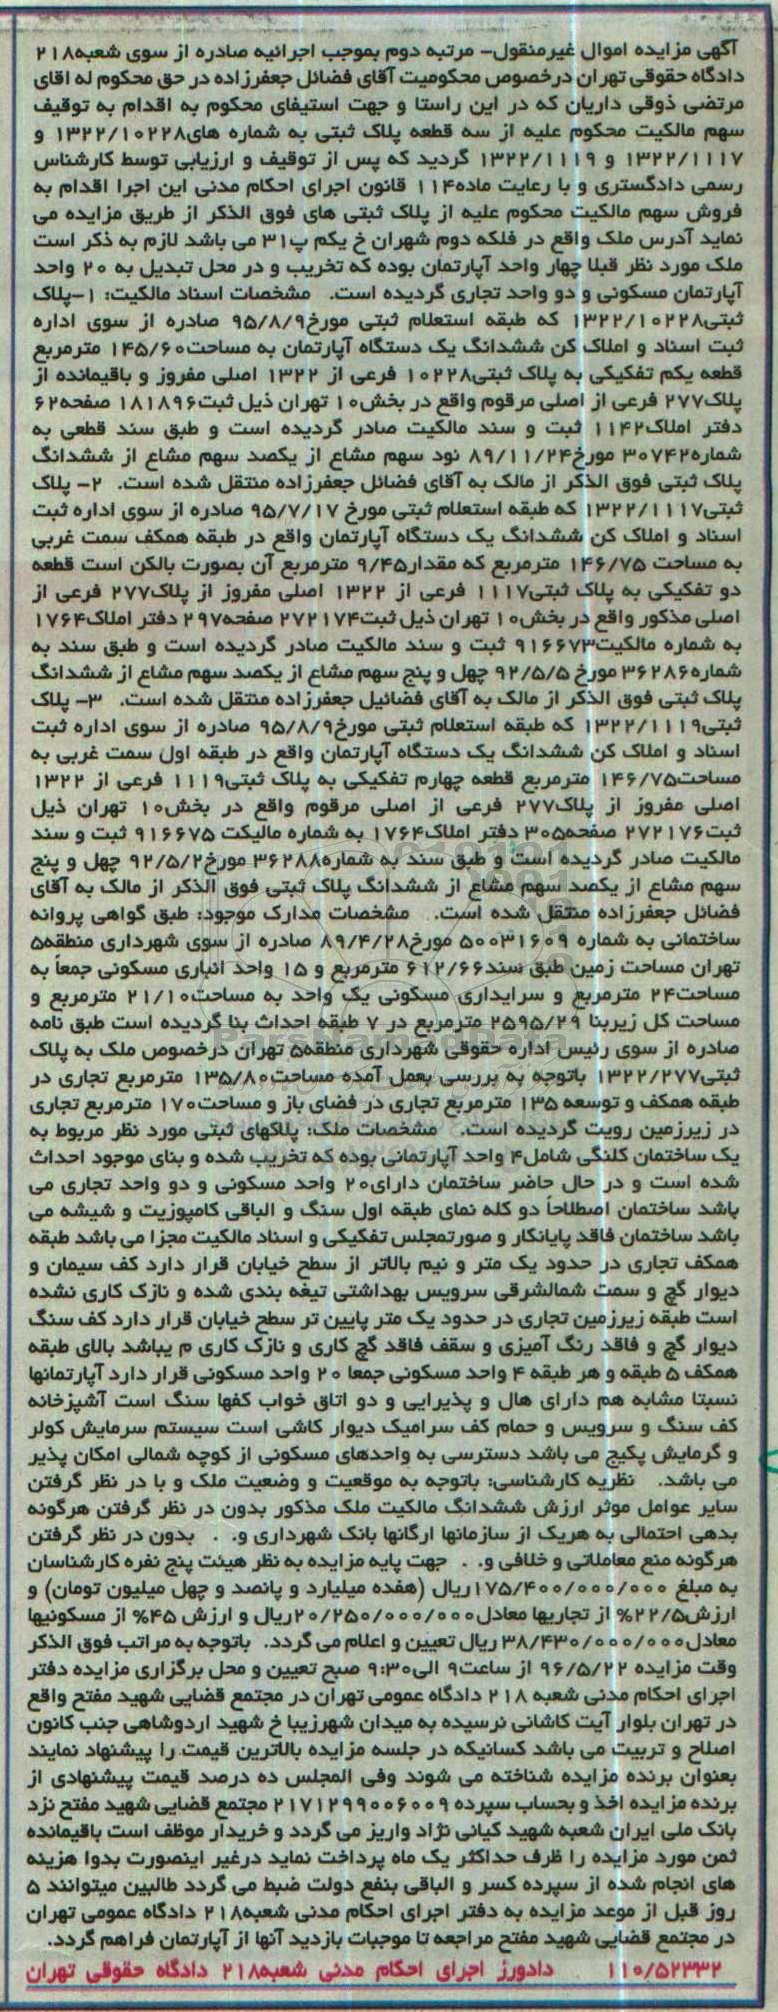 آگهی مزایده اموال غیرمنقول- مرتبه دوم بموجب اجرائیه صادره از سوی شعبه۲۱۸
دادگاه حقوقی تهران درخصوص محکومیت آقای فضائل جعفرزاده در حق محکوم له اقای
مرتضی ذوقی داریان که در این راستا و جهت استیفای محکوم به اقدام به توقیف
سهم مالکیت محکوم علیه از سه قطعه پلاک ثبتی به شماره های۱۳۲۲/۱۰۲۲۸ و
۱۳۲۲/۱۱۱۷ و ۱۳۲۲/۱۱۱۹ گردید که پس از توقیف و ارزیابی توسط کارشناس
رسمی دادگستری و با رعایت ماده۱۱۴ قانون اجرای احکام مدنی این اجرا اقدام به
فروش سهم مالکیت محکوم علیه از پلاک ثبتی های فوق الذکر از طریق مزایده می
نماید آدرس ملک واقع در فلکه دوم شهران خ یکم پ۳۱ می باشد لازم به ذکر است
ملک مورد نظر قبلا چهار واحد آپارتمان بوده که تخریب و در محل تبدیل به ۲۰ واحد
آپارتمان مسکونی و دو واحد تجاری گردیده است. مشخصات اسناد مالکیت: ۱-پلاک
ثبتی۱۳۲۲/۱۰۲۲۸ که طبقه استعلام ثبتی مورخ۹۵/۸/۹ صادره از سوی اداره
ثبت اسناد و املاک کن ششدانگ یک دستگاه آپارتمان به مساحت۱۴۵/۶۰ مترمربع
قطعه یکم تفکیکی به پلاک ثبتی۱۰۲۲۸ فرعی از ۱۳۲۲ اصلی مفروز و باقیمانده از
پلاک۲۷۷ فرعی از اصلی مرقوم واقع در بخش۱۰ تهران ذیل ثبت۱۸۱۸۹۶ صفحه۶۲
دفتر املاک۱۱۴۲ ثبت و سند مالکیت صادر گردیده است و طبق سند قطعی به
شماره۳۰۷۴۲ مورخ۸۹/۱۱/۲۴ نود سهم مشاع از یکصد سهم مشاع از ششدانگ
پلاک ثبتی فوق الذکر از مالک به آقای فضائل جعفرزاده منتقل شده است. ۲- پلاک
ثبتی۱۳۲۲/۱۱۱۷ که طبقه استعلام ثبتی مورخ ۹۵/۷/۱۷ صادره از سوی اداره ثبت
اسناد و املاک کن ششدانگ یک دستگاه آپارتمان واقع در طبقه همکف سمت غربی
به مساحت ۱۴۶/۷۵ مترمربع که مقدار۹/۴۵ مترمربع آن بصورت بالکن است قطعه
دو تفکیکی به پلاک ثبتی۱۱۱۷ فرعی از ۱۳۲۲ اصلی مفروز از پلاک۲۷۷ فرعی از
اصلی مذکور واقع در بخش۱۰ تهران ذیل ثبت۲۷۲۱۷۴ صفحه۲۹۷ دفتر املاک۱۷۶۴
به شماره مالکیت۹۱۶۶۷۳ ثبت و سند مالکیت صادر گردیده است و طبق سند به
شماره۳۶۲۸۶ مورخ ۹۲/۵/۵ چهل و پنج سهم مشاع از یکصد سهم مشاع از ششدانگ
پلاک ثبتی فوق الذکر از مالک به آقای فضائیل جعفرزاده منتقل شده است. ۳- پلاک
ثبتی۱۳۲۲/۱۱۱۹ که طبقه استعلام ثبتی مورخ۹۵/۸/۹ صادره از سوی اداره ثبت
اسناد و املاک کن ششدانگ یک دستگاه آپارتمان واقع در طبقه اول سمت غربی به
مساحت۱۴۶/۷۵ مترمربع قطعه چهارم تفکیکی به پلاک ثبتی۱۱۱۹ فرعی از ۱۳۲۲
اصلی مفروز از پلاک۲۷۷ فرعی از اصلی مرقوم واقع در بخش۱۰ تهران ذیل
ثبت۲۷۲۱۷۶ صفحه۳۰۵ دفتر املاک۱۷۶۴ به شماره مالیکت ۹۱۶۶۷۵ ثبت و سند
مالکیت صادر گردیده است و طبق سند به شماره۳۶۲۸۸ مورخ۹۲/۵/۲ چهل و پنج
سهم مشاع از یکصد سهم مشاع از ششدانگ پلاک ثبتی فوق الذکر از مالک به آقای
فضائل جعفرزاده منتقل شده است. مشخصات مدارک موجود: طبق گواهی پروانه
ساختمانی به شماره ۵۰۰۳۱۶۰۹ مورخ۸۹/۴/۲۸ صادره از سوی شهرداری منطقه۵
تهران مساحت زمین طبق سند۶۱۲/۶۶ مترمربع و ۱۵ واحد انباری مسکونی جمعاً به
مساحت۲۴ مترمربع و سرایداری مسکونی یک واحد به مساحت۲۱/۱۰ مترمربع و
مساحت کل زیربنا ۲۵۹۵/۲۹ مترمربع در ۷ طبقه احداث بنا گردیده است طبق نامه
صادره از سوی رئیس اداره حقوقی شهرداری منطقه۵ تهران درخصوص ملک به پلاک
ثبتی۱۳۲۲/۲۷۷ باتوجه به بررسی بعمل آمده مساحت۱۳۵/۸۰ مترمربع تجاری در
طبقه همکف و توسعه ۱۳۵ مترمربع تجاری در فضای باز و مساحت۱۷۰ مترمربع تجاری
در زیرزمین رویت گردیده است. مشخصات ملک: پلاکهای ثبتی مورد نظر مربوط به
یک ساختمان کلنگی شامل۴ واحد آپارتمانی بوده که تخریب شده و بنای موجود احداث
شده است و در حال حاضر ساختمان دارای۲۰ واحد مسکونی و دو واحد تجاری می
باشد ساختمان اصطلاحاً دو کله نمای طبقه اول سنگ و الباقی کامپوزیت و شیشه می
باشد ساختمان فاقد پایانکار و صورتمجلس تفکیکی و اسناد مالکیت مجزا می باشد طبقه
همکف تجاری در حدود یک متر و نیم بالاتر از سطح خیابان قرار دارد کف سیمان و
دیوار گچ و سمت شمالشرقی سرویس بهداشتی تیغه بندی شده و نازک کاری نشده
است طبقه زیرزمین تجاری در حدود یک متر پایین تر سطح خیابان قرار دارد کف سنگ
دیوار گچ و فاقد رنگ آمیزی و سقف فاقد گچ کاری و نازک کاری م یباشد بالای طبقه
همکف ۵ طبقه و هر طبقه ۴ واحد مسکونی جمعا ۲۰ واحد مسکونی قرار دارد آپارتمانها
نسبتا مشابه هم دارای هال و پذیرایی و دو اتاق خواب کفها سنگ است آشپزخانه
کف سنگ و سرویس و حمام کف سرامیک دیوار کاشی است سیستم سرمایش کولر
و گرمایش پکیج می باشد دسترسی به واحدهای مسکونی از کوچه شمالی امکان پذیر
می باشد. نظریه کارشناسی: باتوجه به موقعیت و وضعیت ملک و با در نظر گرفتن
سایر عوامل موثر ارزش ششدانگ مالکیت ملک مذکور بدون در نظر گرفتن هرگونه
بدهی احتمالی به هریک از سازمانها ارگانها بانک شهرداری و. . بدون در نظر گرفتن
هرگونه منع معاملاتی و خلافی و. . جهت پایه مزایده به نظر هیئت پنج نفره کارشناسان
به مبلغ ۱۷۵/۴۰۰/۰۰۰/۰۰۰ریال (هفده میلیارد و پانصد و چهل میلیون تومان) و
ارزش۲۲/۵% از تجاریها معادل۲۰/۲۵۰/۰۰۰/۰۰۰ریال و ارزش ۴۵% از مسکونیها
معادل۳۸/۴۳۰/۰۰۰/۰۰۰ ریال تعیین و اعلام می گردد. باتوجه به مراتب فوق الذکر
وقت مزایده ۹۶/۵/۲۲ از ساعت۹ الی۹:۳۰ صبح تعیین و محل برگزاری مزایده دفتر
اجرای احکام مدنی شعبه ۲۱۸ دادگاه عمومی تهران در مجتمع قضایی شهید مفتح واقع
در تهران بلوار آیت کاشانی نرسیده به میدان شهرزیبا خ شهید اردوشاهی جنب کانون
اصلاح و تربیت می باشد کسانیکه در جلسه مزایده بالاترین قیمت را پیشنهاد نمایند
بعنوان برنده مزایده شناخته می شوند وفی المجلس ده درصد قیمت پیشنهادی از
برنده مزایده اخذ و بحساب سپرده ۲۱۷۱۲۹۹۰۰۶۰۰۹ مجتمع قضایی شهید مفتح نزد
بانک ملی ایران شعبه شهید کیانی نژاد واریز می گردد و خریدار موظف است باقیمانده
ثمن مورد مزایده را ظرف حداکثر یک ماه پرداخت نماید درغیر اینصورت بدوا هزینه
های انجام شده از سپرده کسر و الباقی بنفع دولت ضبط می گردد طالبین میتوانند ۵
روز قبل از موعد مزایده به دفتر اجرای احکام مدنی شعبه۲۱۸ دادگاه عمومی تهران
در مجتمع قضایی شهید مفتح مراجعه تا موجبات بازدید آنها از آپارتمان فراهم گردد.
۱۱۰/۵۲۳۳۲ دادورز اجرای احکام مدنی شعبه۲۱۸ دادگاه حقوقی تهران